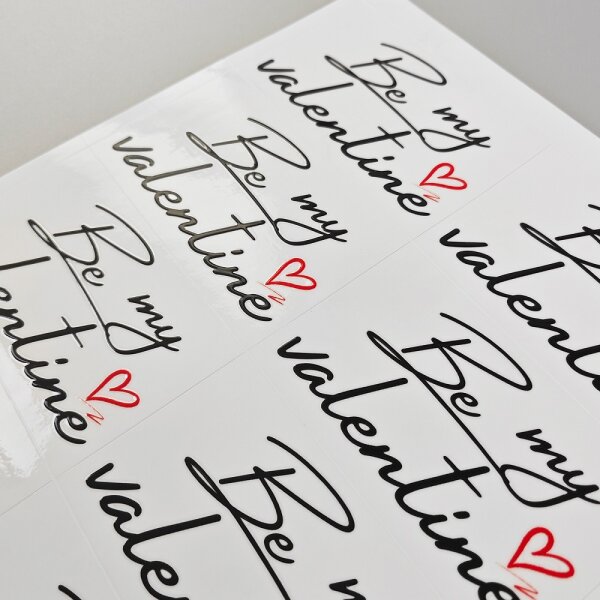 Be my
valentine
Be my
valentine
Be my
valentine
Be my
valentine
Be
valentine
Be
vale